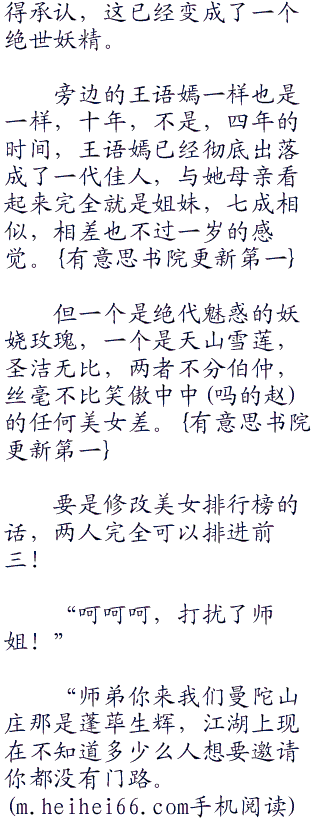 得承认，这已经变成了一个
绝世妖精。
旁边的王语嫣一样也是
一样，十年，不是，四年的
时间，王语嫣已经彻底出落
成了一代佳人，与她母亲看
起来完全就是姐妹，七成相
似，相差也不过一岁的感
觉。{有意思书院更新第一}
但一个是绝代魅惑的妖
娆玫瑰，一个是天山雪莲，
圣洁无比，两者不分伯仲，
丝毫不比笑傲中中(吗的赵)
的任何美女差。{有意思书院
更新第一}
要是修改美女排行榜的
话，两人完全可以排进前
三！
“呵呵呵，打扰了师
姐！”
“师弟你来我们曼陀山
庄那是蓬荜生辉，江湖上现
在不知道多少么人想要邀请
你都没有门路。
(m.heihei66.com手机阅读)